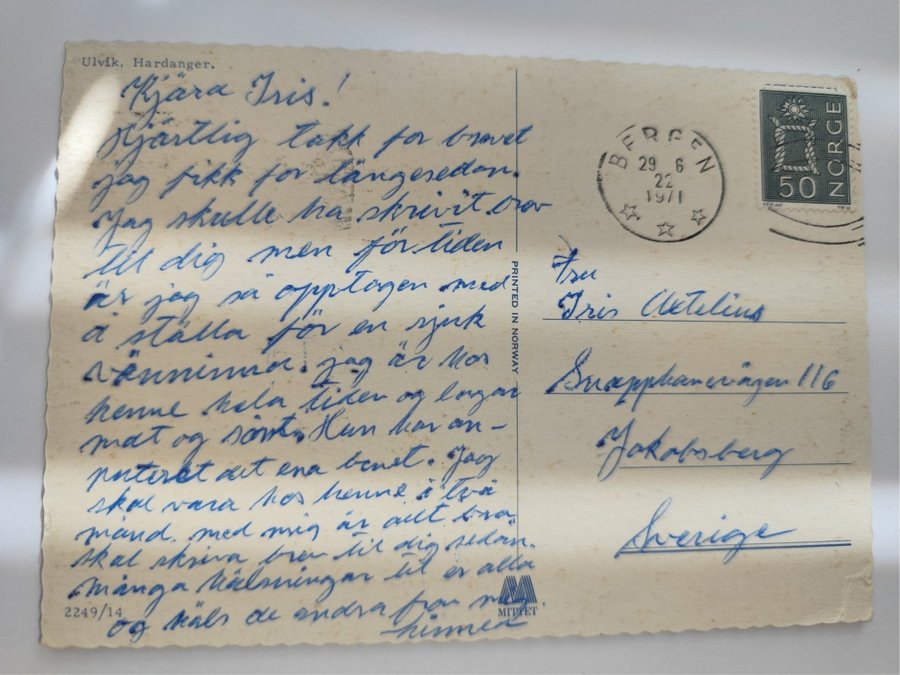 Ulvik, Hardanger.
Kjära Iris!
Hjärtlig takk for brevet
jag fikk for längesedan.
Jag skulle ha skrivit brev
til dig men för tiden
är jag så opptagen med
å ställa för en sjuk
vänninna. jag är hos
henne hela tiden og lagar
mat og sånt. Hun har am-
puteret det ena benet. Jag
skal vara hos henne i två
månd. med mig är allt bra
skal skriva brev til dig sedan.
många hälsningar til er alla
og häls de andra från mig
2249/14
PRINTED IN NORWAY
MITTET
BERGEN
29 6
22
1971
50 NORGE
Fru
Iris Axtelius
Snapphanevägen 116
Jakobsberg
Sverige